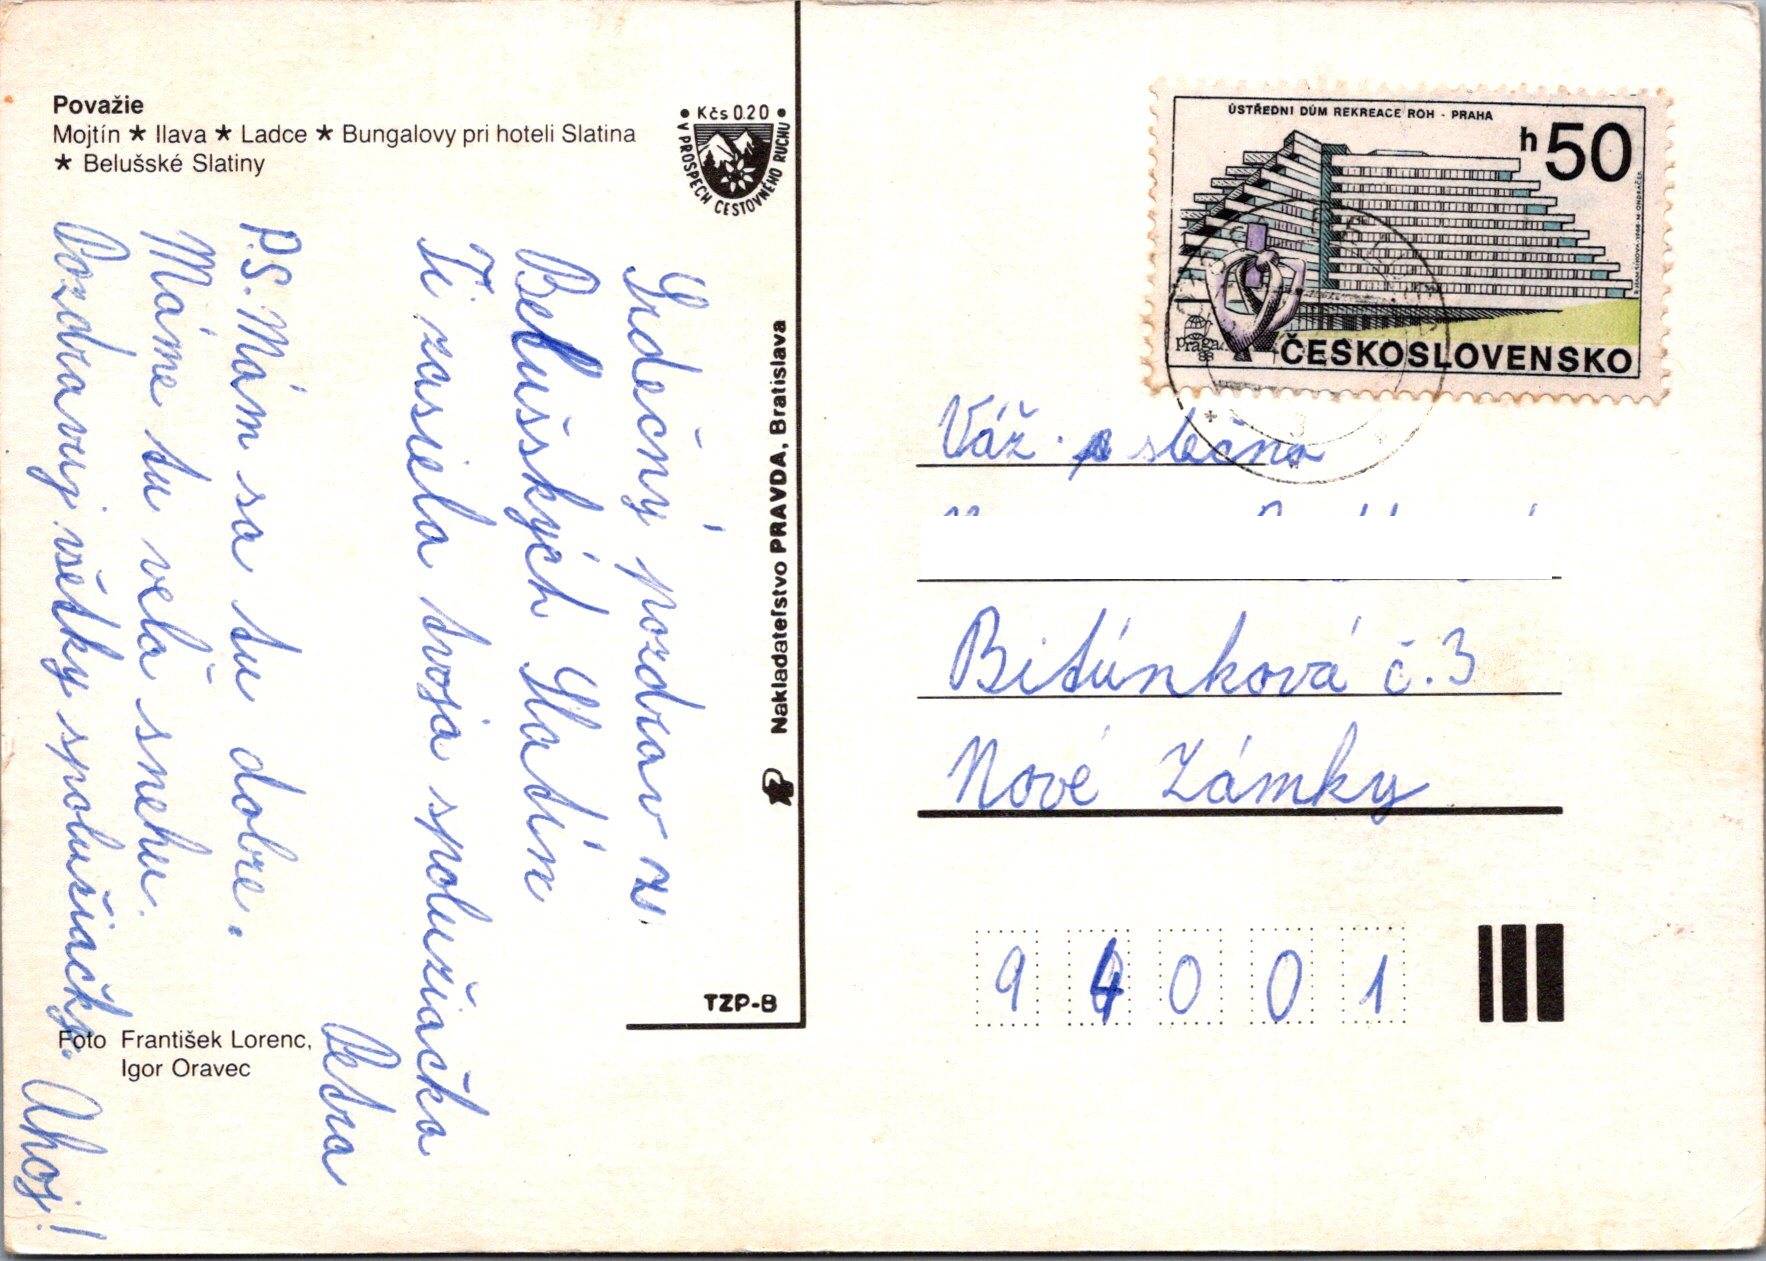 Považie
Mojtín ★ Ilava ★ Ladce ★ Bungalovy pri hoteli Slatina
★ Belušské Slatiny
Kčs 0.20
V PROSPECH CESTOVNÉHO RUCHU
Srdečný pozdrav zo.
Belušských Slatín
Ti zasiela tvoja spolužiačka
Petra
P.S. Mám sa tu dobre.
Máme tu veľa snehu.
Pozdravuj všetky spolužiačky. Ahoj!
Foto František Lorenc,
Igor Oravec
Nakladateľstvo PRAVDA, Bratislava
TZP-B
ÚSTŘEDNÍ DŮM REKREACE ROH - PRAHA
h50
praga
88
ČESKOSLOVENSKO
Váž. slečna
Bitúnková č.3
Nové Zámky
94001